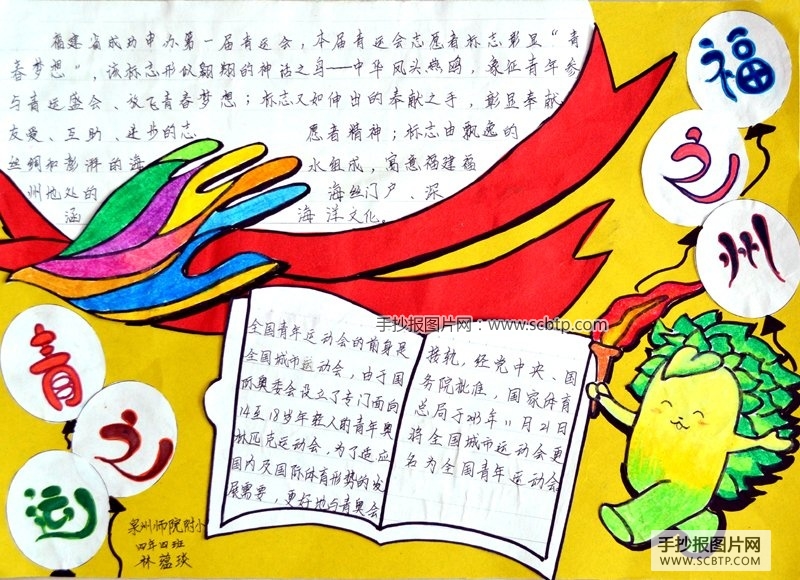 福建省成功申办第一届青运会，本届青运会志愿者标志彰显“青
春梦想”，该标志形似翱翔的神话之鸟——中华凤头燕鸥，象征青年参
与青运盛会、放飞青春梦想；标志又如伸出的奉献之手，彰显奉献
友爱、互助、进步的志愿者精神；标志由飘逸的
丝绸和澎湃的海水组成，寓意福建福
州地处的海丝门户、深
涵海洋文化。
福
之
州
手抄报图片网：www.scbtp.com
全国青年运动会的前身是
全国城市运动会，由于国
际奥委会设立了专门面向
14至18岁年轻人的青年奥
林匹克运动会，为了适应
国内及国际体育形势的发
展需要，更好地与青奥会
接轨，经党中央、国
务院批准，国家体育
总局于2013年11月21日
将全国城市运动会更
名为全国青年运动会
青
之
运
泉州师院附小
四年四班
林蕴琰
手抄报图片网
WWW.SCBTP.COM